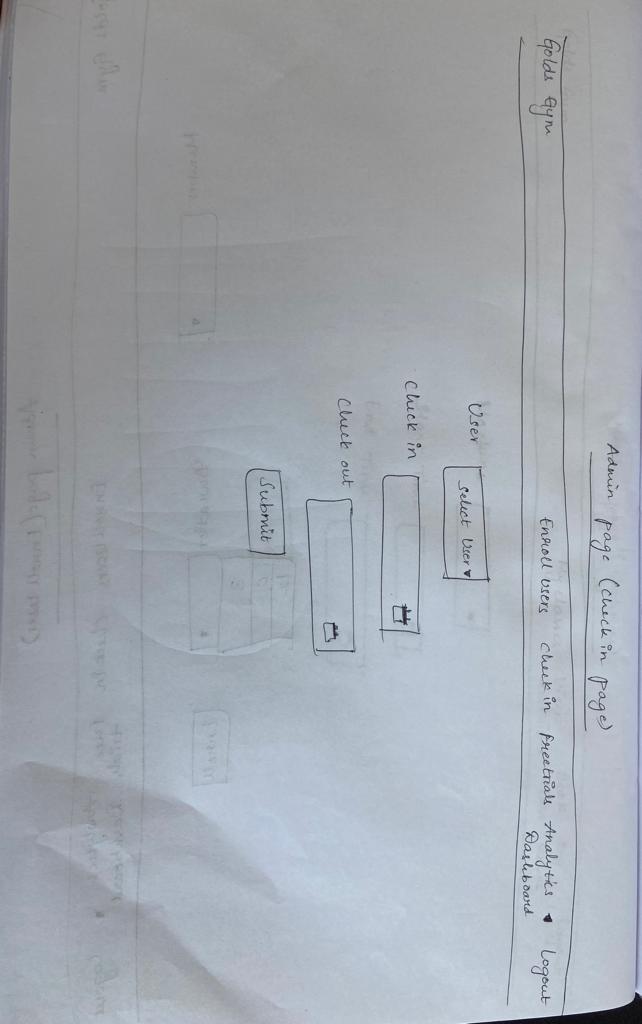 Admin page (Check in page)
Golds Gym Enroll Users Check in Freetrials Analytics Logout
Dashboard
User Select User
Check in
Check out
Submit